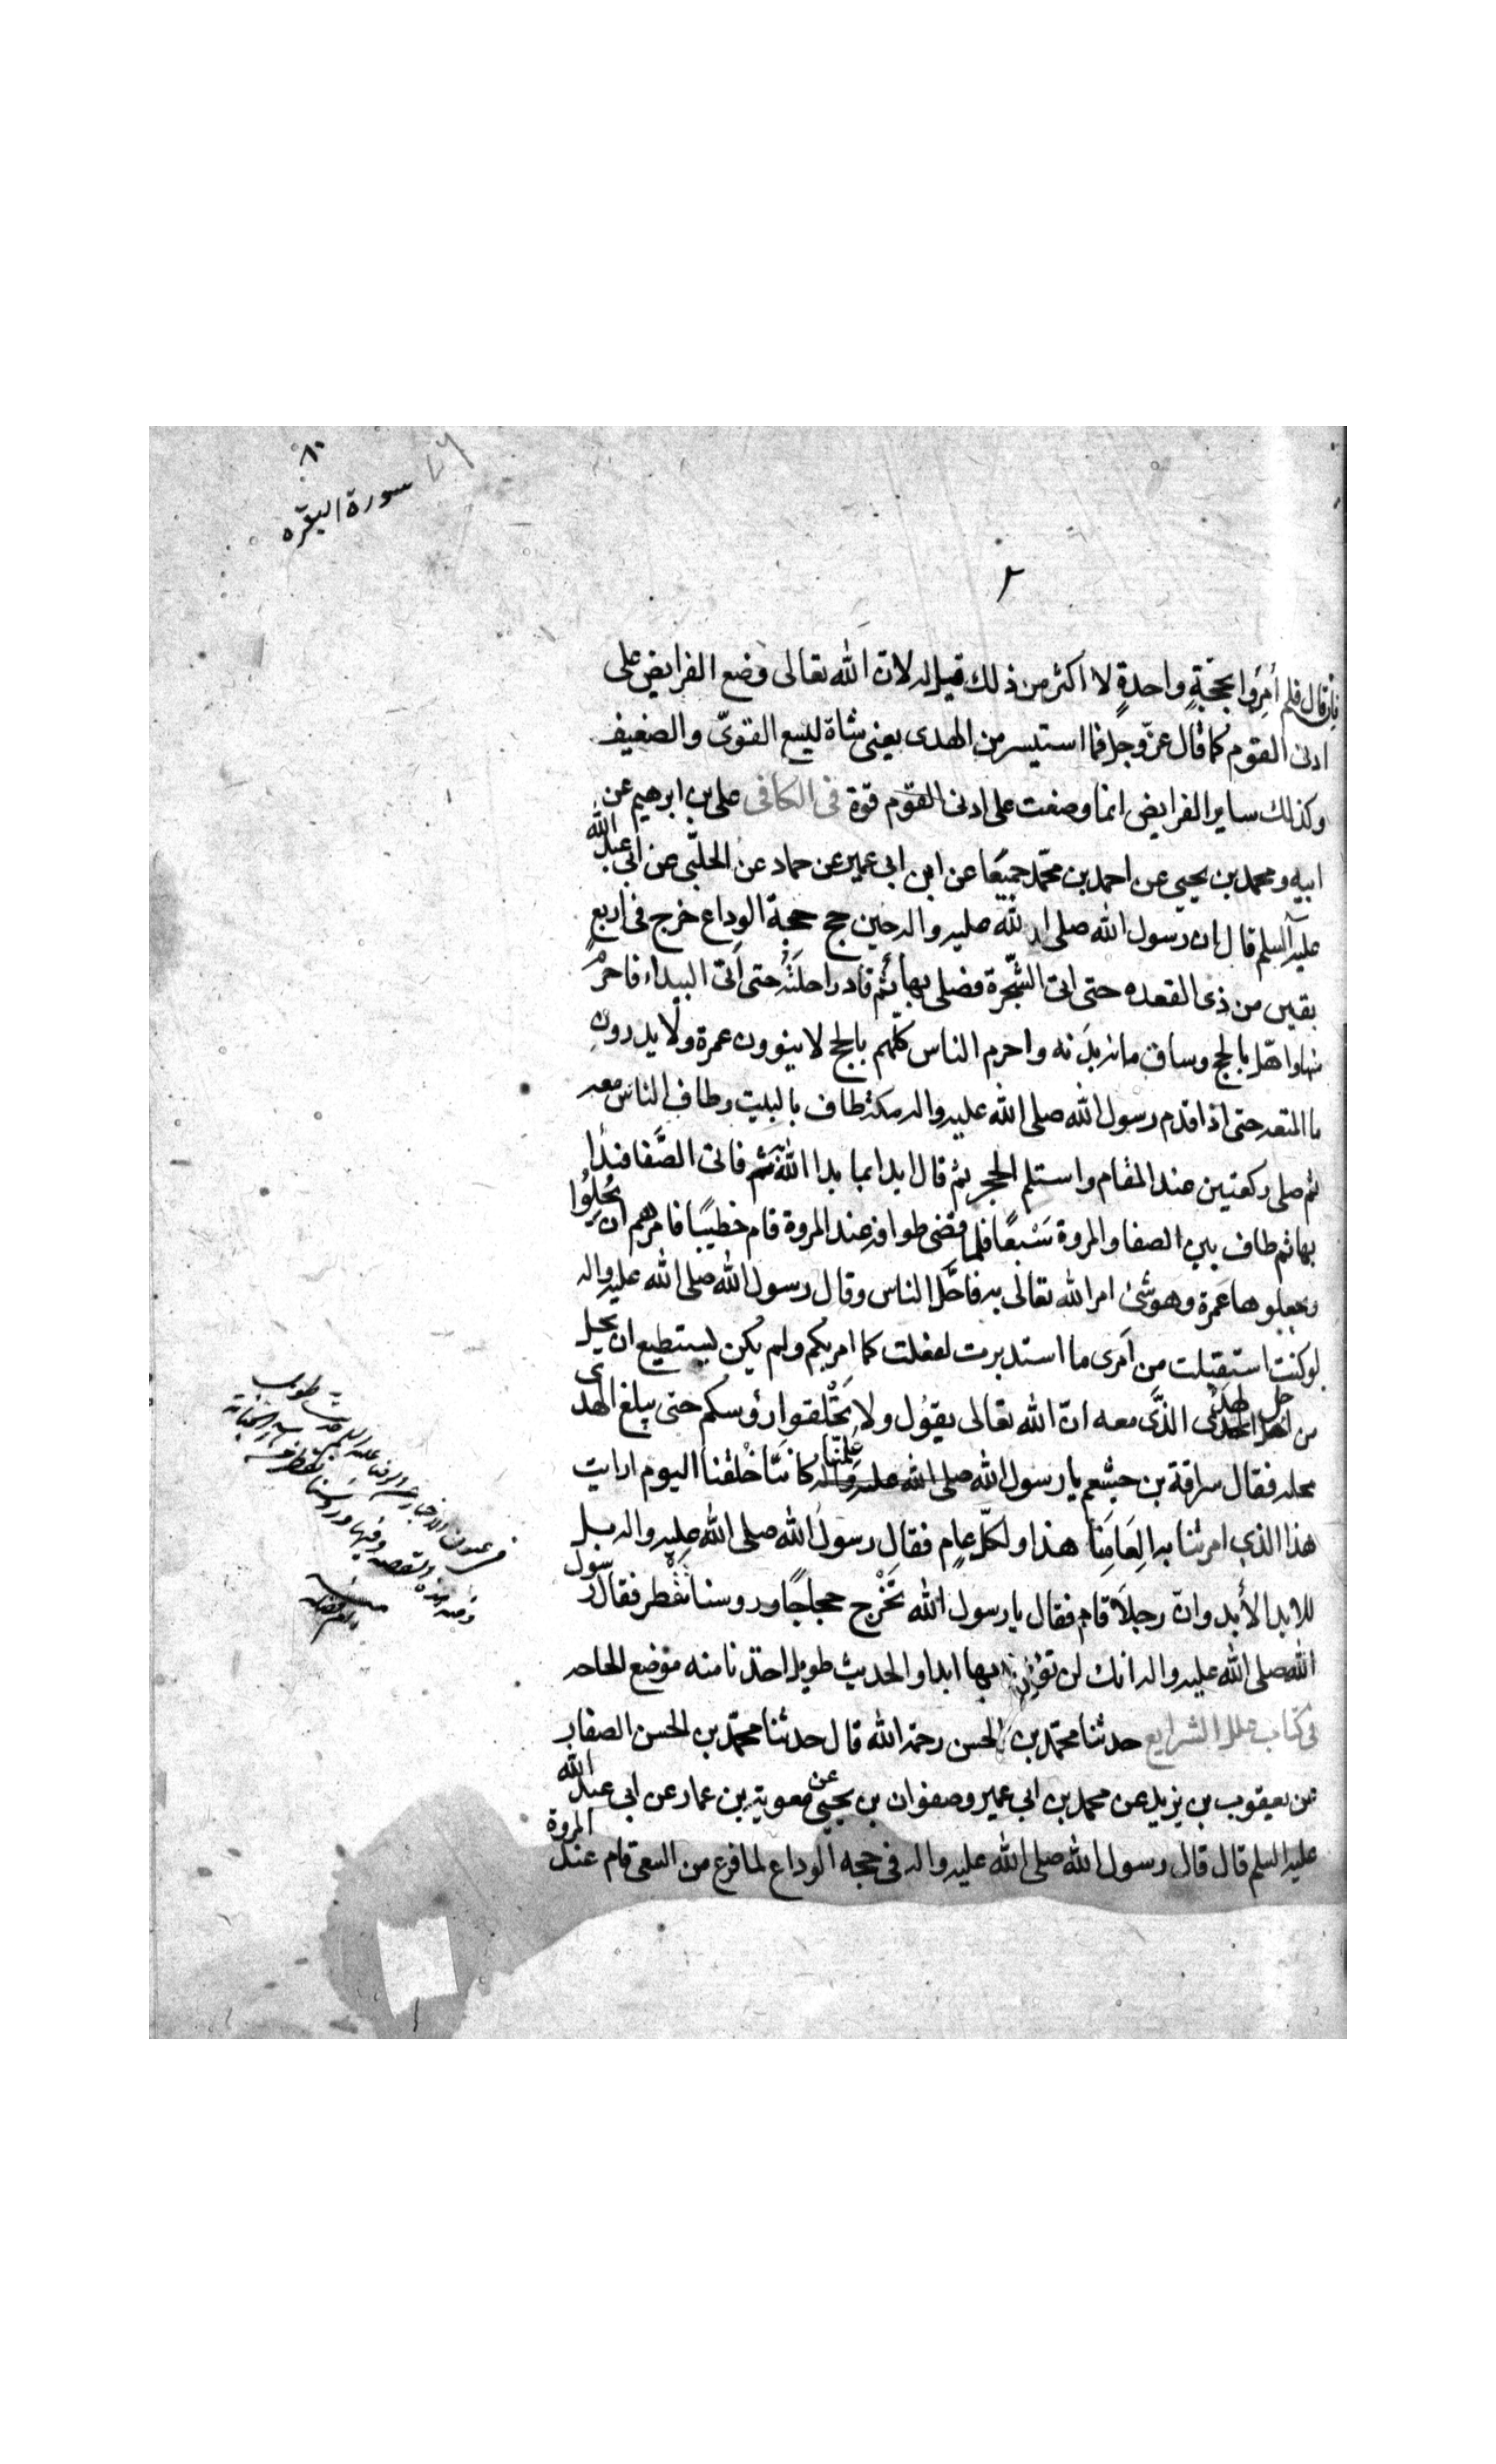 ٨٠
سورة البقره
فان قال فلم أمروا بحجة واحدة لا اكثر من ذلك قيل له لان الله تعالى وضع الفرايض على
ادنى القوم كما قال عزّ وجل فما استيسر من الهدى يعنى شاة ليسع القوىّ والضعيف
وكذلك ساير الفرايض انما وضعت على ادنى القوم قوة فى الكافى على بن ابرهيم عن
ابيه ومحمد بن يحيى عن احمد بن محمّد جميعًا عن ابن ابى عمير عن حماد عن الحلبّى عن ابى عبد الله
عليه السلم قال ان رسول الله صلى الله عليه واله حين حج حجة الوداع خرج فى اربع
بقين من ذى القعده حتى اتى الشّجرة فصلى بها ثم قاد راحلته حتى اتى البيداء فاحرم
منها واهّل بالحج وساق مائة بدنه واحرم الناس كلّهم بالحج لا ينوون عمرة ولا يدرون
ما المتعه حتى اذا قدم رسول الله صلى الله عليه واله مكة طاف بالبيت وطاف الناس معه
ثم صلى ركعتين عند المقام واستلم الحجر ثم قال ابدا بما بدا الله به ثم فاتى الصّفا فبدأ
بها ثم طاف بين الصفا والمروة سَبْعًا فلما قضى طوافه عند المروة قام خطيبًا فامرهم ان يُحِلوُا
ويجعلوها عمرة وهو شئ امر الله تعالى به فاحَّل الناس وقال رسول الله صلى الله عليه واله
لو كنت استقبلت من اَمرى ما استدبرت لفعلت كما امرتكم ولم يكن يستطيع ان يحل
من اجل الهدى الذَّى معه انّ الله تعالى يقول ولا تَحْلقوا رؤسكم حتى يبلغ الهدى
محله فقال سراقة بن جشعم يا رسول الله صلى الله عليه واله عُلِمّنا كانّنا خُلقنا اليوم ارايت
هذا الذي امرتنا به لِعَامِنَا هذا ولكلّ عام فقال رسول الله صلى الله عليه واله بل
للابد الأبد وانّ رجلاً قام فقال يا رسول الله تَخْرج حجاجًا وروسنا تقْطر فقال رسول
الله صلى الله عليه واله انك لن تؤمن بها ابدا والحديث طويل اخذنا منه موضع الحاجه
فى كتاب علل الشرايع حدثنا محمّد بن الحسن رحمة الله قال حدثنا محمّد بن الحسن الصفار
عن يعقوب بن يزيد عن محمد بن ابى عمير وصفوان بن يحيى عن معوية بن عمار عن ابى عبد الله
عليه السلم قال قال رسول الله صلى الله عليه واله فى حجه الوداع لما فرغ من السعى قام عند المروة